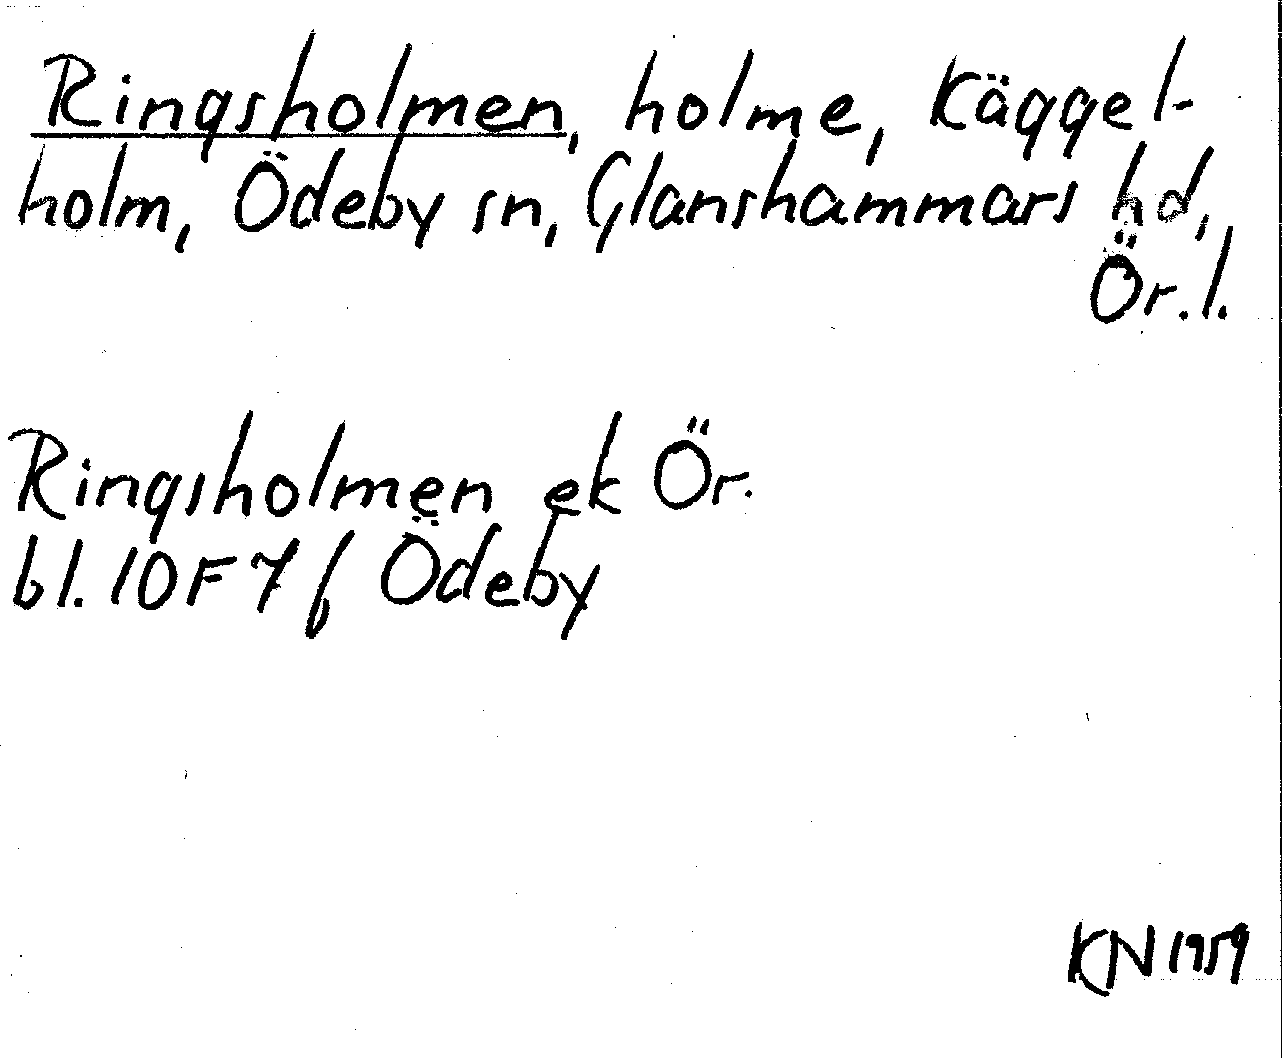 Ringsholmen, holme, Käggel-
holm, Ödeby sn, Glanshammars hd,
Ör.l.
Ringsholmen ek Ör.
bl. 10F 7f Ödeby
KN 1959